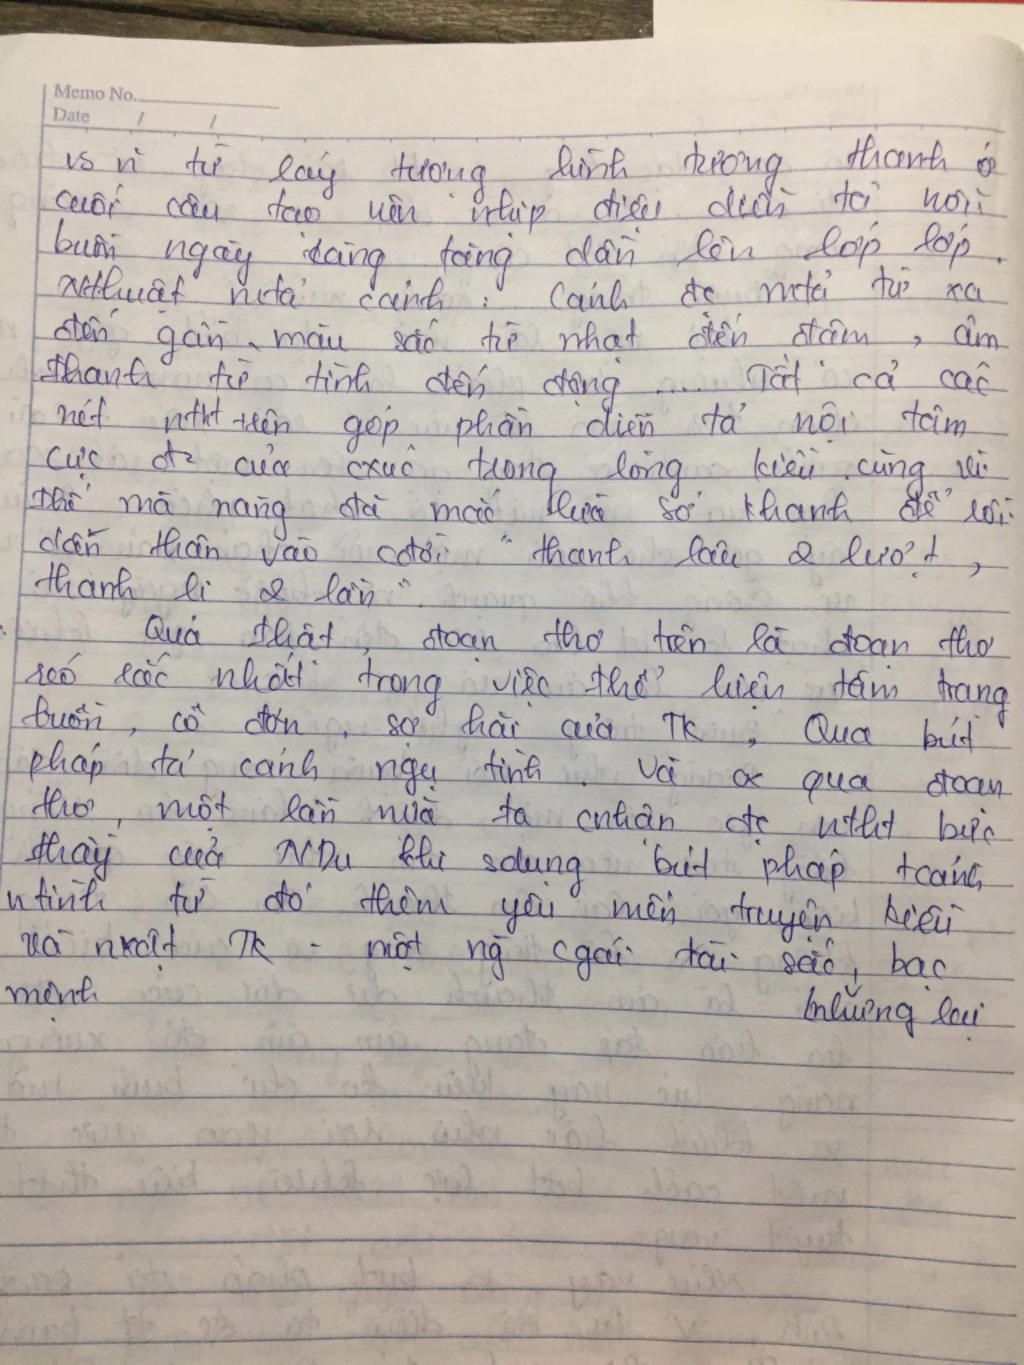 Memo No.
Date / /
vs n~ từ láy tượng hình tượng thanh ở
cuối câu tạo nên nhịp điệu diễn tả nỗi
buồn ngày càng tăng dần lên lớp lớp.
Nthuật mtả cảnh: Cảnh đc mtả từ xa
đến gần, màu sắc từ nhạt đến đậm, âm
thanh từ tĩnh đến động .... Tất cả các
nét ntht trên góp phần diễn tả nội tâm
cực của cxúc trong lòng kiều. cũng vì
thế mà nàng đã mắc lừa sở khanh để rồi
dấn thân vào cđời "thanh lâu 2 lượt,
thanh li 2 lần".
Quả thật, đoạn thơ trên là đoạn thơ
sắc nhất trong việc thể hiện tâm trạng
buồn, cô đơn, sợ hãi của TK, Qua bút
pháp tả cảnh ngụ tình. Và qua đoạn
thơ, một lần nữa ta cnhận đc ntht bậc
thầy của NDu khi sdụng bút pháp tcảnh
ntình từ đó thêm yêu mến truyện kiều
và nvật TK - một ng` cgái tài sắc, bạc
mệnh nhưng lại